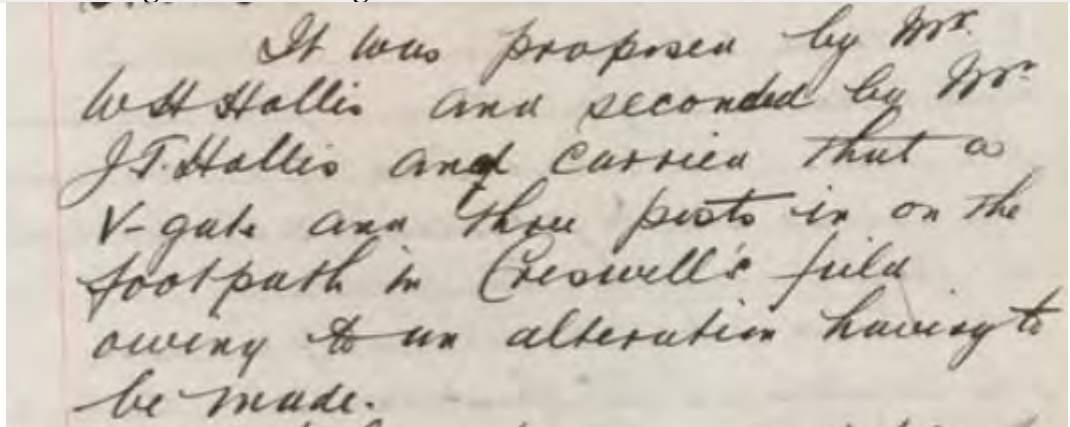 It was proposed by Mr.
W H Hollis and seconded by Mr
J T. Hollis and carried that a
V-gate and three posts in on the
footpath in Creswell's field
owing to an alteration having to
be made.